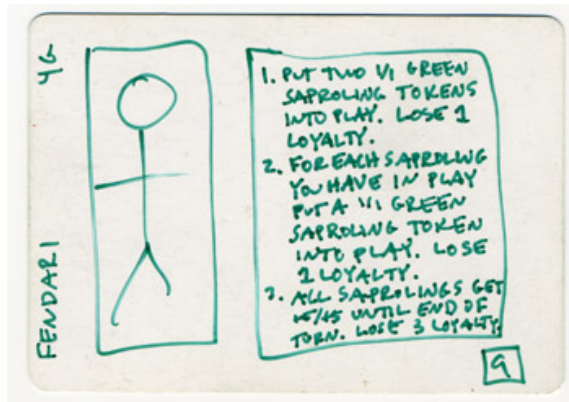 FENDARI
4G
1. PUT TWO 1/1 GREEN
SAPROLING TOKENS
INTO PLAY. LOSE 1
LOYALTY.
2. FOR EACH SAPROLING
YOU HAVE IN PLAY
PUT A 1/1 GREEN
SAPROLING TOKEN
INTO PLAY. LOSE
2 LOYALTY.
3. ALL SAPROLINGS GET
+5/+5 UNTIL END OF
TURN. LOSE 3 LOYALTY.
9